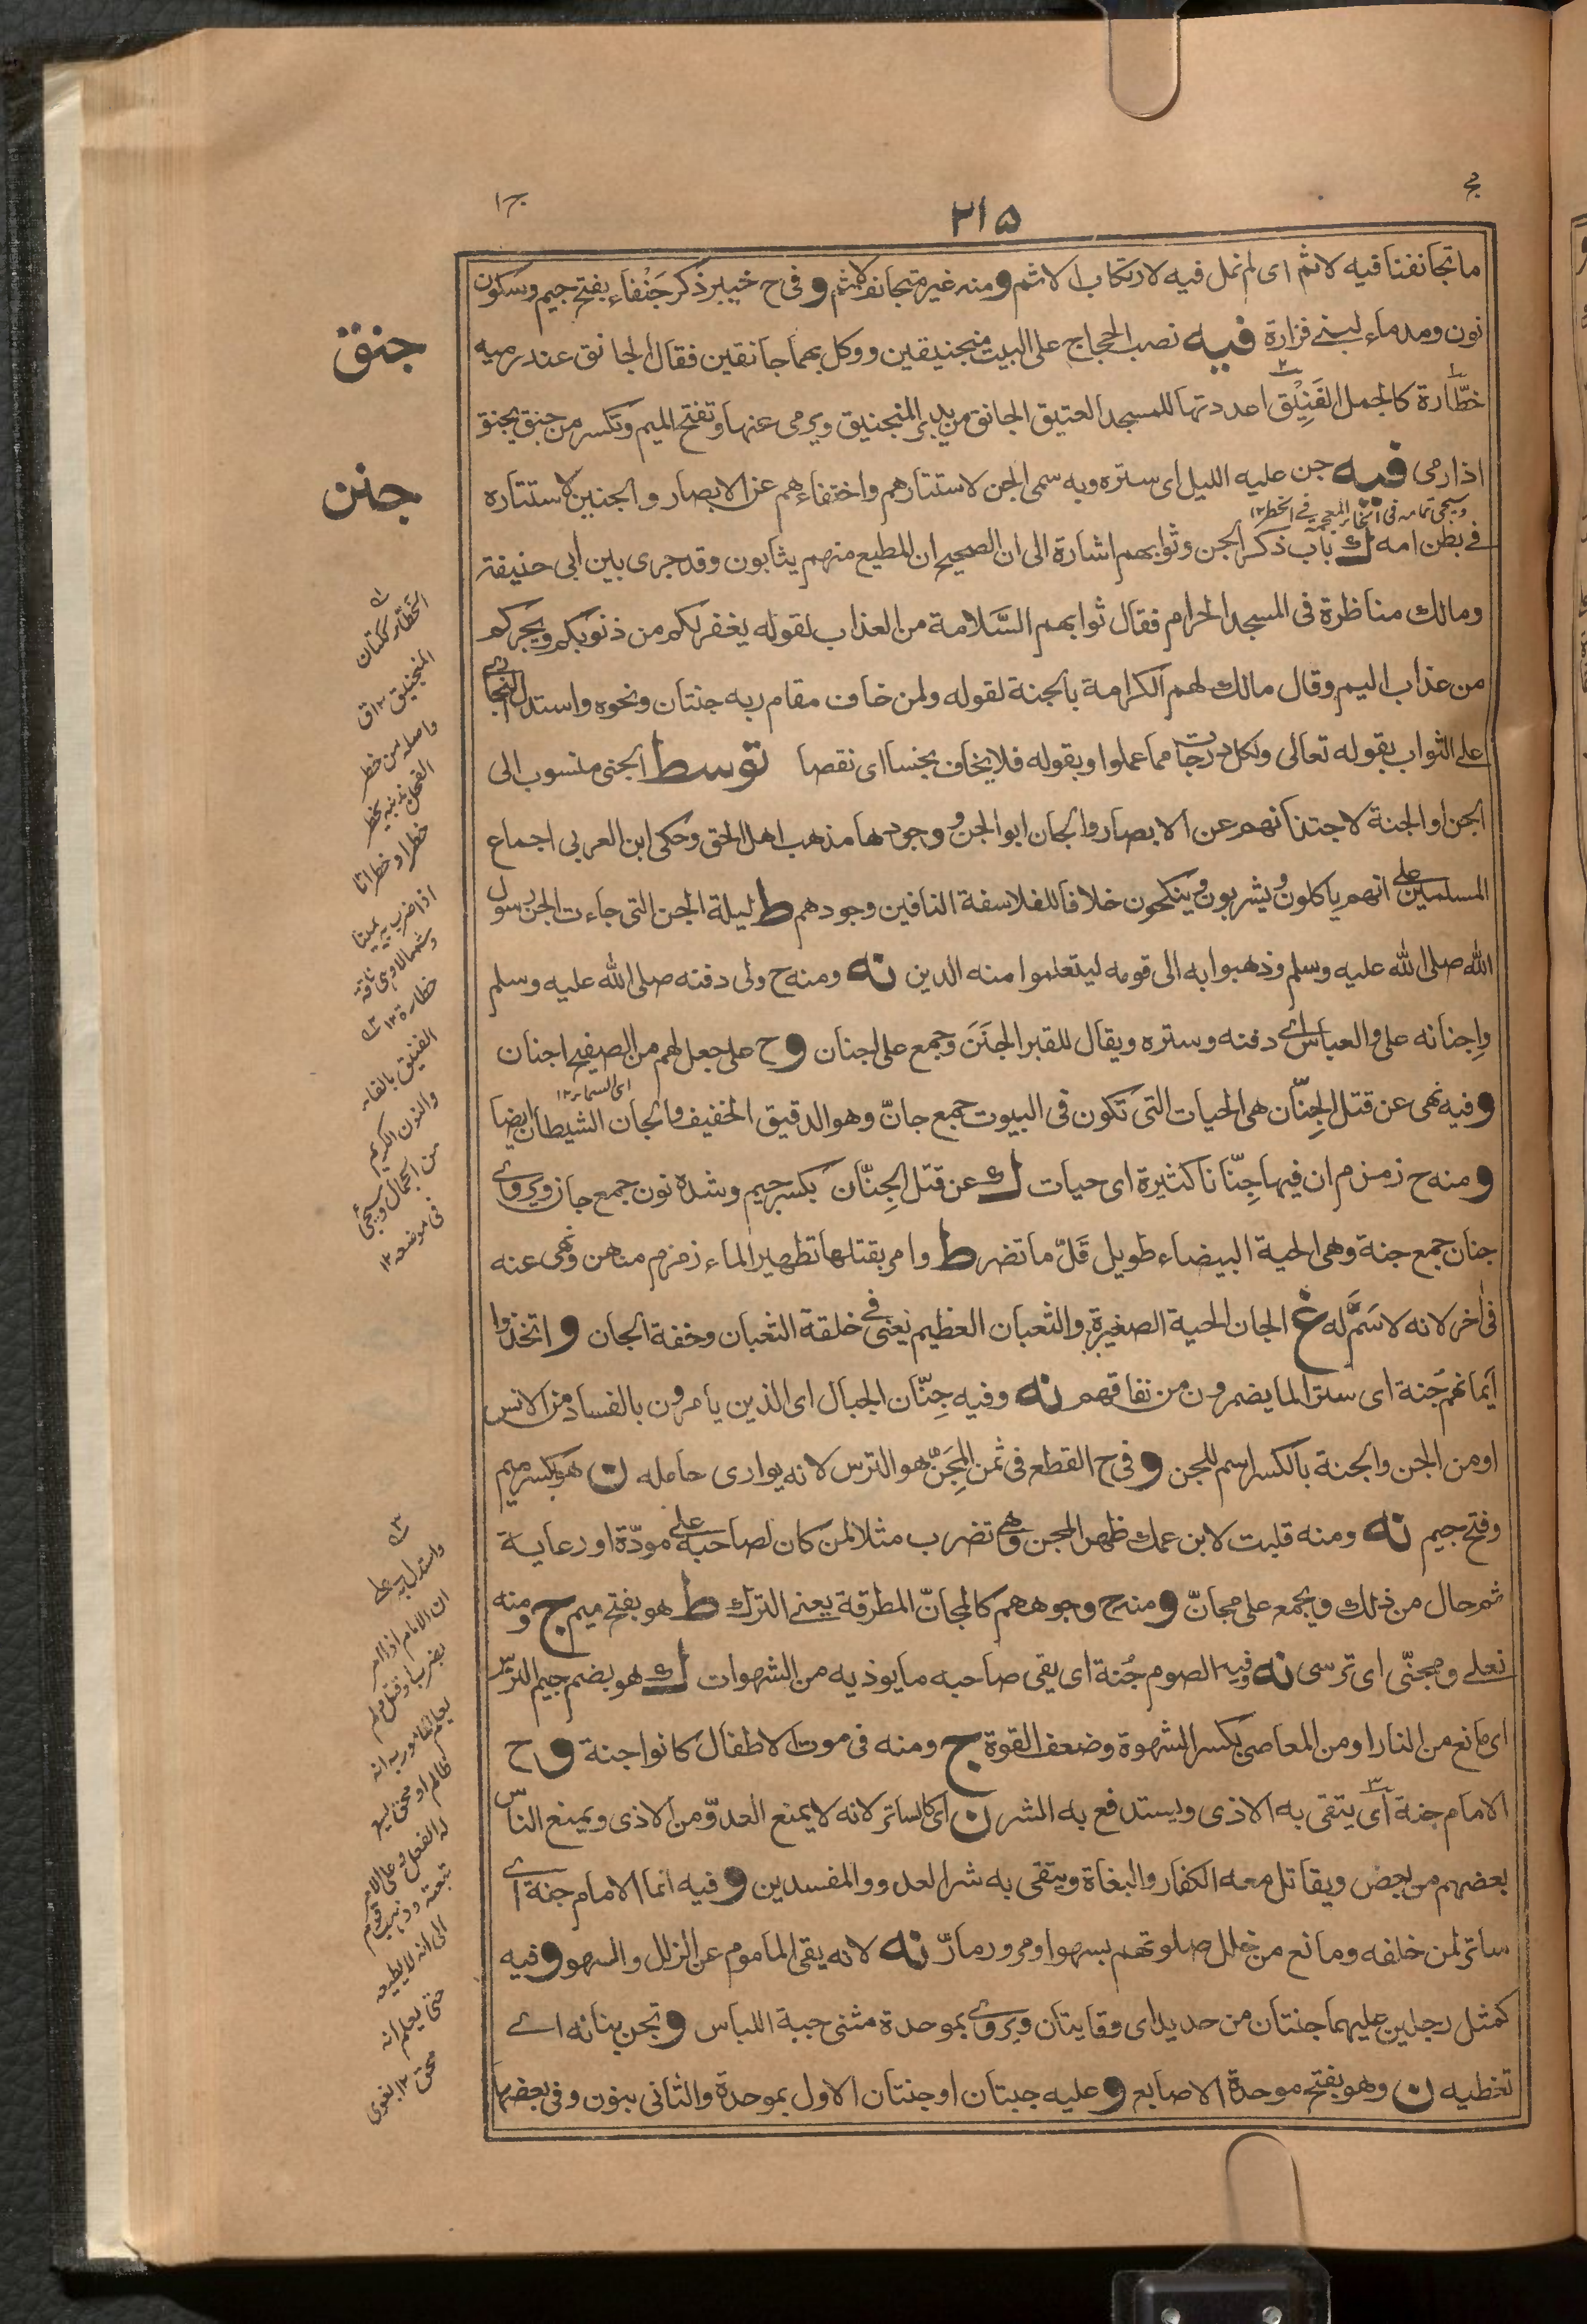 ج
٢١٥
ج١
ما تجانفنا فيه لاثم اى لم نمل فيه لارتكاب الاثم و منه غير متجانف لاثم و فى ح خيبر ذكر جَنْفاء بفتح جيم وسكون
نون ومد ماء لبنے فزارة فيه نصب الحجاج على البيت منجنيقين ووكل بهما جانقين فقال الجانق عند رميه
خطّارة كالجمل الفَنِيْق اعددتها للمسجد العتيق الجانق من يدبر المنجنيق ويرمى عنها وتفتح الميم وتكسر من جنق يجنق
اذا رمى فيه جن عليه الليل اى ستره وبه سمى الجن لاستتارهم واختفاءهم عن الابصار والجنين لاستتاره
فے بطن امه ك باب ذكر الجن وثوابهم اشارة الى ان الصحيح ان المطيع منهم يثابون وقد جرى بين ابى حنيفة
ومالك مناظرة فى المسجد الحرام فقال ثوابهم السَّلامة من العذاب لقوله يغفر لكم من ذنوبكم ويجركم
من عذاب اليم وقال مالك لهم الكرامة بالجنة لقوله ولمن خاف مقام ربه جنتان ونحوه واستدل البخارى
على الثواب بقوله تعالى ولكل درجات مما عملوا وبقوله فلا يخاف بخسا اى نقصا توسط الجنى منسوب الى
الجن او الجنة لاجتنانهم عن الابصار والجان ابو الجن و وجودها مذهب اهل الحق وحكى ابن العربى اجماع
المسلمين على انهم ياكلون ويشربون وينكحون خلافا للفلاسفة النافين وجودهم ط ليلة الجن التى جاءت الجن رسول
الله صلى الله عليه وسلم وذهبوا به الى قومه ليتعلموا منه الدين نه ومنه ح ولى دفنه صلى الله عليه وسلم
واِجنانه على والعباس اے دفنه وستره ويقال للقبر الجَنَن وجمع على اجنان و ح على جعل لهم من الصفيح اجنان
و فيه نهى عن قتل الجِنّان هى الحيات التى تكون فى البيوت جمع جانّ وهو الدقيق الخفيف والجان الشيطان ايضا
و منه ح زمزم ان فيها جِنّانا كثيرة اى حيات ك عن قتل الجِنّان بكسر جيم وشدة نون جمع جان ويروے
جنان جمع جنة وهى الحية البيضاء طويل قَلّ ما تضر ط وامر بقتلها تطهيرا لماء زمزم منهن ونهى عنه
فى اخر لانه لا سَمَّ له غ الجان الحية الصغيرة والثعبان العظيم يعنى فے خلقة الثعبان وخفة الجان و اتخذوا
ايمانهم جُنة اى سترا لما يضمرون من نفاقهم نه وفيه جِنّان الجبال اى الذين يامرون بالفساد من الانس
او من الجن والجنة بالكسر اسم للجن و فى ح القطع فى ثمن المِجَنّ هو الترس لانه يوارى حامله ن هو بكسر ميم
وفتح جيم نه ومنه قلبت لابن عمك ظهر المجن وهى تضرب مثلا لمن كان لصاحبه على مودّة او رعاية
ثم حال من ذلك ويجمع على مجانّ و منه ح وجوههم كالمجانّ المطرقة يعنے الترك ط هو بفتح ميم ج ومنه
نعلے ومجنّى اى ترسى نه وفيه الصوم جُنة اى يقى صاحبه ما يوذيه من الشهوات ك هو بضم جيم الترس
اى مانع من النار او من المعاصى بكسر الشهوة وضعف القوة ج ومنه فى موت الاطفال كانوا جنة و ح
الامام جنة اى يتقى به الاذى ويستدفع به الشر ن اى كالساتر لانه لا يمنع العدوّ من الاذى ويمنع الناس
بعضهم من بعض ويقاتل معه الكفار والبغاة ويتقى به شر العدو والمفسدين و فيه انما الامام جنة اے
ساتر لمن خلفه ومانع من خلل صلوتهم بسهو او مرور مارّ نه لانه يقى الماموم عن الزلل والسهو و فيه
كمثل رجلين عليهما جنتان من حديد اى وقايتان ويروے بموحدة مثنى جبة اللباس و تجن بنانه اے
تغطيه ن وهو بفتح موحدة الاصابع و عليه جبتان او جنتان الاول بموحدة والثانى بنون وفى بعضها
وسيجى تمامه فى الخاء المعجمة فے الخطر١٢
اى السماء١٢
جنق
جنن
الخطار ككتان
المنجنيق ١٢ق
واصله من خطر
الفحل بذنبه يخطر
خطرا وخطرانا
اذا ضرب به يمينا
وشمالا وهى ناقة
خطارة ١٢
الفنيق بالفاء
والنون الكريم
من الجمال وسيجئ
فى موضعه ١٢
واستدل به على
ان الامام اذا امر
بضرب او قتل ولم
يعلم المامور به انه
ظالم او محق
حتى يعلم انه
محق ١٢ بغوى